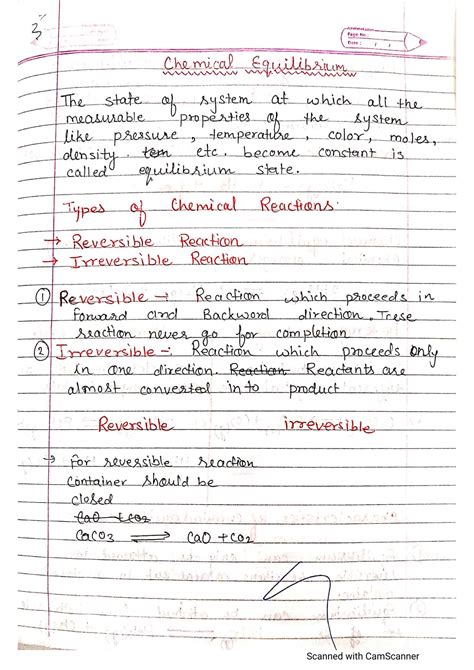 3
Page No.
Date
Chemical Equilibrium
The state of system at which all the
measurable properties of the system
like pressure, temperature, color, moles,
density. tem etc. become constant is
called equilibrium state.
Types of Chemical Reactions:
→ Reversible Reaction
→ Irreversible Reaction
① Reversible → Reaction which proceeds in
forward and Backword direction. These
reaction never go for completion
② Irreversible -: Reaction which proceeds only
in one direction. Reaction Reactants are
almost converted in to product
Reversible irreversible
→ for reversible reaction
container should be
closed
CaO + CO2
CaCO3 ⇌ CaO + CO2
Scanned with CamScanner